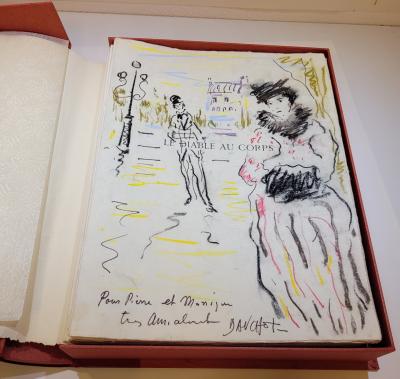 LE DIABLE AU CORPS
Pour Pierre et Monique
très amicalement DAUCHOT